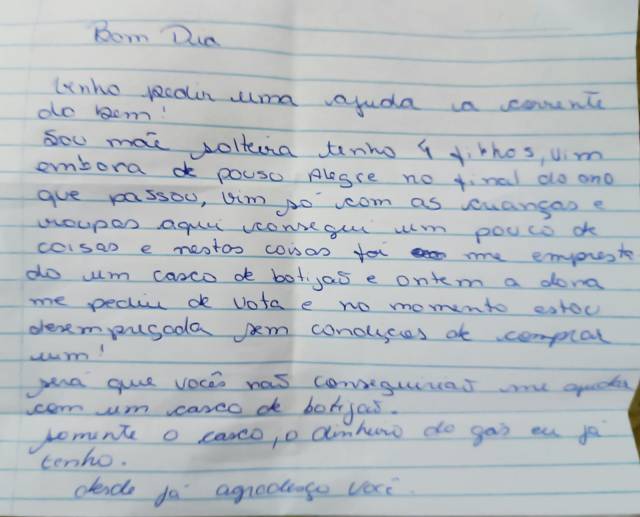 Bom Dia
venho pedir uma ajuda a corrente
do bem!
Sou mãe solteira tenho 4 filhos, vim
embora de pouso Alegre no final do ano
que passou, vim só com as crianças e
roupas aqui consegui um pouco de
coisas e nestas coisas foi me empresta
do um casco de botijão e ontem a dona
me pediu de vota e no momento estou
desempregada sem condições de comprar
um!
será que vocês não conseguirias me ajudar
com um casco de botijão.
somente o casco, o dinheiro do gas eu já
tenho.
desde já agradeço você.